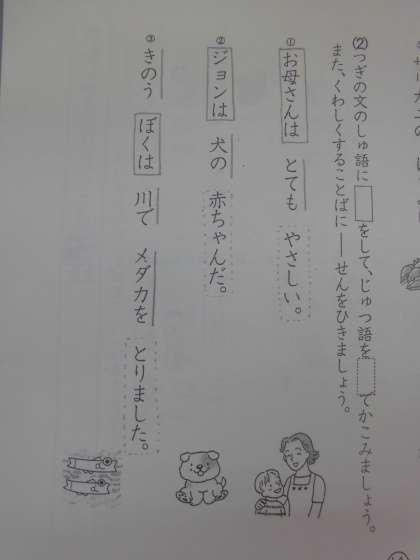 ⑵つぎの文のしゅ語に□をして、じゅつ語を□でかこみましょう。
また、くわしくすることばに──せんをひきましょう。
① お母さんは とても やさしい。
② ジョンは 犬の 赤ちゃんだ。
③ きのう ぼくは 川で メダカを とりました。